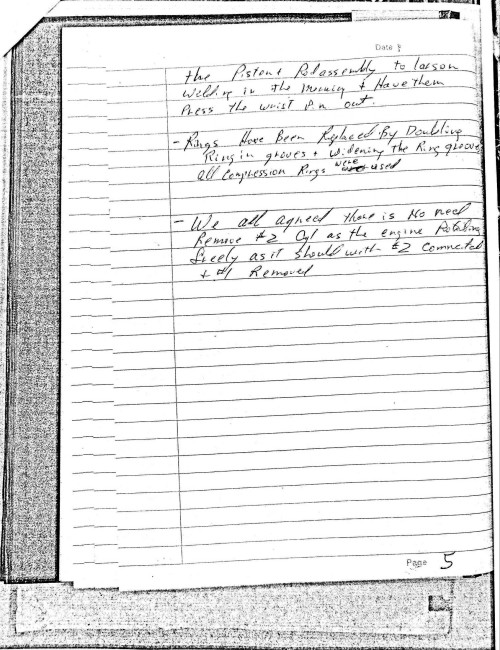 Date
the Piston & Rod assembly to Larson
Welding in the morning & Have them
Press the wrist Pin out.
- Rings Have Been Replaced By Doubling
Ring in groves + widening the Ring groove
all Compression Rings were used
- We all agreed there is No need
Remove #2 Cyl as the engine Rotating
freely as it should with #2 Connected
+ #1 Removed
Page 5